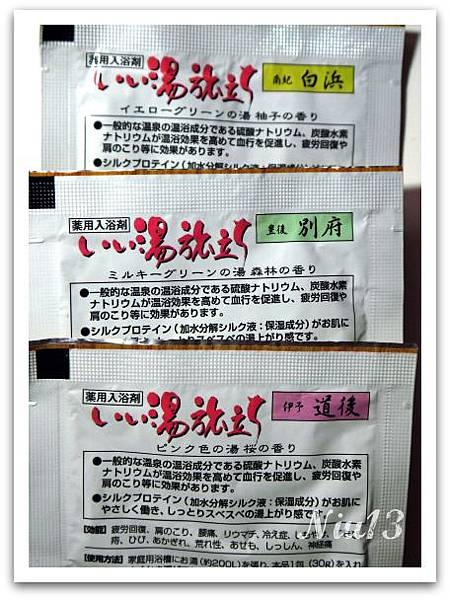 薬用入浴剤
いい湯旅立ち
南紀 白浜
イエローグリーンの湯 柚子の香り
●一般的な温泉の温浴成分である硫酸ナトリウム、炭酸水素
ナトリウムが温浴効果を高めて血行を促進し、疲労回復や
肩のこり等に効果があります。
●シルクプロテイン(加水分解シルク液:保湿成分)が
薬用入浴剤
いい湯旅立ち
豊後 別府
ミルキーグリーンの湯 森林の香り
●一般的な温泉の温浴成分である硫酸ナトリウム、炭酸水素
ナトリウムが温浴効果を高めて血行を促進し、疲労回復や
肩のこり等に効果があります。
●シルクプロテイン(加水分解シルク液:保湿成分)がお肌に
しっとりスベスベの湯上がり感です。
薬用入浴剤
いい湯旅立ち
伊予 道後
ピンク色の湯 桜の香り
●一般的な温泉の温浴成分である硫酸ナトリウム、炭酸水素
ナトリウムが温浴効果を高めて血行を促進し、疲労回復や
肩のこり等に効果があります。
●シルクプロテイン(加水分解シルク液:保湿成分)がお肌に
やさしく働き、しっとりスベスベの湯上がり感です。
【効能】疲労回復、肩のこり、腰痛、リウマチ、冷え症、しもやけ、
痔、ひび、あかぎれ、荒れ性、あせも、しっしん、神経痛
【使用方法】家庭用浴槽にお湯(約200L)を張り、本品1包(30g)を入れ
Niu13